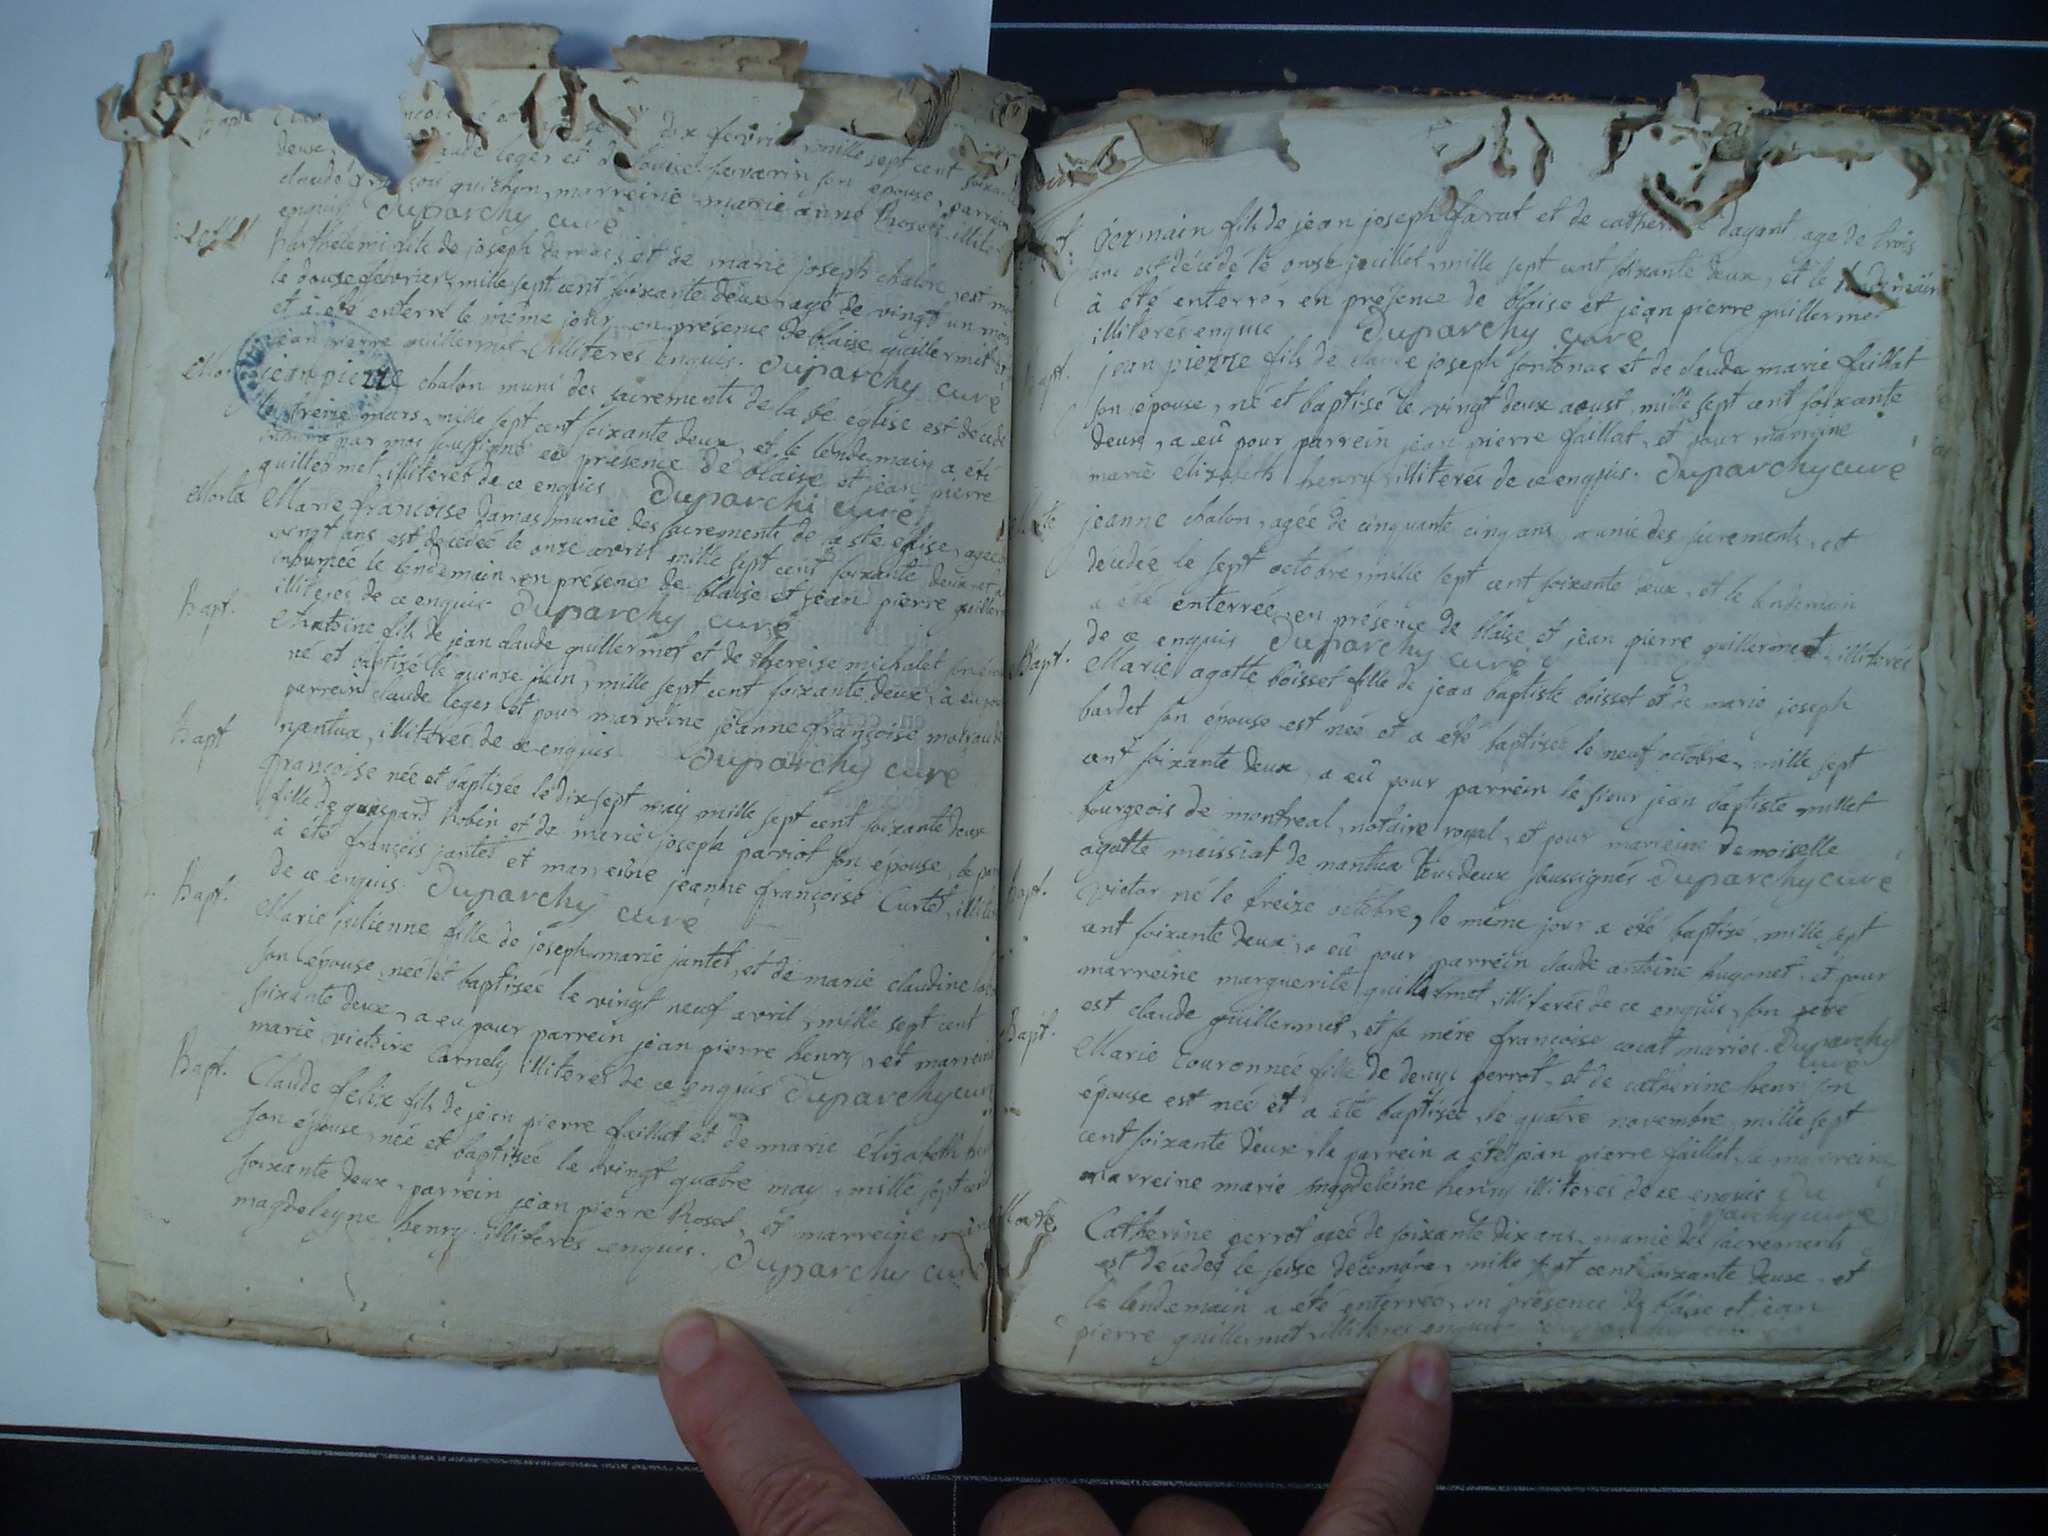 Bapt
et dix fevrier mille sept cent soixante
deux, claude leger et de louise savarin son epouse, parrein
claude françois guichon, marreine marie anne Roset illite
enquis Duparchy curé
barthelemi fils de joseph damas et de marie joseph chalon, est mort
le douze fevrier, mille sept cent soixante deux, agé de vingt un mois
et à été enterré le même jour, en présence de blaise guillermet et
jean pierre guillermet, illiterés enquis. Duparchy curé
Mort jean pierre chalon muni des sacrements de la ste eglise est decedé
le treize mars, mille sept cent soixante deux, et le lendemain a été
inhumé par moi soussigné en présence de blaise et jean pierre
guillermet, illiterés de ce enquis Duparchi curé
Morte Marie françoise damas munie des sacrements de la ste eglise, agée de
vingt ans est décédée le onze avril mille sept cent soixante deux et
inhumée le lendemain, en présence de blaise et jean pierre guillerm
illiterés de ce enquis Duparchy curé
Bapt. Antoine fils de jean claude guillermet et de thereise michalet
né et baptisé le quinze juin, mille sept cent soixante deux, à eu pour
parrein claude leger et pour marreine jeanne françoise
nantua, illiterés de ce enquis Duparchy curé
Bapt françoise née et baptisée le dix sept may mille sept cent soixante deux
fille de guaspard Robin et de marie joseph parriot son épouse, le par
à été françois jantet et marreine jeanne françoise Curtet, illite
de ce enquis. Duparchy curé
Bapt. Marie julienne fille de joseph marie jantet, et de marie claudine
son épouse, née et baptisée le vingt neuf avril, mille sept cent
soixante deux, a eu pour parrein jean pierre henry, et marreine
marie victoire Cornely illiterés de ce enquis Duparchy curé
Bapt. Claude felix fils de jean pierre faillat et de marie élizabeth hen
son épouse, née et baptisée le vingt quatre may, mille sept cent
soixante deux, parrein jean pierre Roset, et marreine
magdeleyne henry. illiterés enquis. Duparchy curé
Germain fils de jean joseph farat et de catherine dagant, agé de trois
ans est décédé le onze juillet, mille sept cent soixante deux, et le lendemain
à été enterré, en présence de blaise et jean pierre guillermet
illiterés enquis Duparchy curé
Bapt. jean pierre fils de claude joseph fontanas et de claude marie faillat
son epouse, né et baptisé le vingt deux aoust, mille sept cent soixante
deux, a eû pour parrein jean pierre faillat, et pour marreine
marie elizabeth henry illiterés de ce enquis. Duparchy curé
Morte jeanne chalon, agée de cinquante cinq ans, munie des sacrements, est
décédée le sept octobre, mille sept cent soixante deux, et le lendemain
a été enterrée, en présence de blaise et jean pierre guillermet, illiterés
de ce enquis Duparchy curé
Bapt. Marie agatte boisset fille de jean baptiste boisset et de marie joseph
bardet son épouse est née et a été baptisée le neuf octobre, mille sept
cent soixante deux, a eû pour parrein le sieur jean baptiste millet
bourgeois de montreal, notaire royal, et pour marreine demoiselle
agatte meissiat de nantua tous deux soussignés Duparchy curé
Bapt. Victor né le treize octobre, le même jour a été baptisé, mille sept
cent soixante deux, a eû pour parrein claude antoine hugonet, et pour
marreine marguerite guillermet, illiterés de ce enquis, son pere
est claude guillermet, et sa mére françoise cocat mariés. Duparchy
curé
Bapt. Marie Couronnée fille de denys perrot, et de catherine henri son
épouse est née et a été baptisée, le quatre novembre, mille sept
cent soixante deux, le parrein a été jean pierre faillat, la marreine
marreine marie magdeleine henry illiterés de ce enquis Du
parchy curé
Morte Catherine perrot agée de soixante dix ans, munie des sacrements
est décédée le seize decembre, mille sept cent soixante deux, et
le lendemain a été enterrée, en présence de blaise et jean
pierre guillermet, illiterés enquis